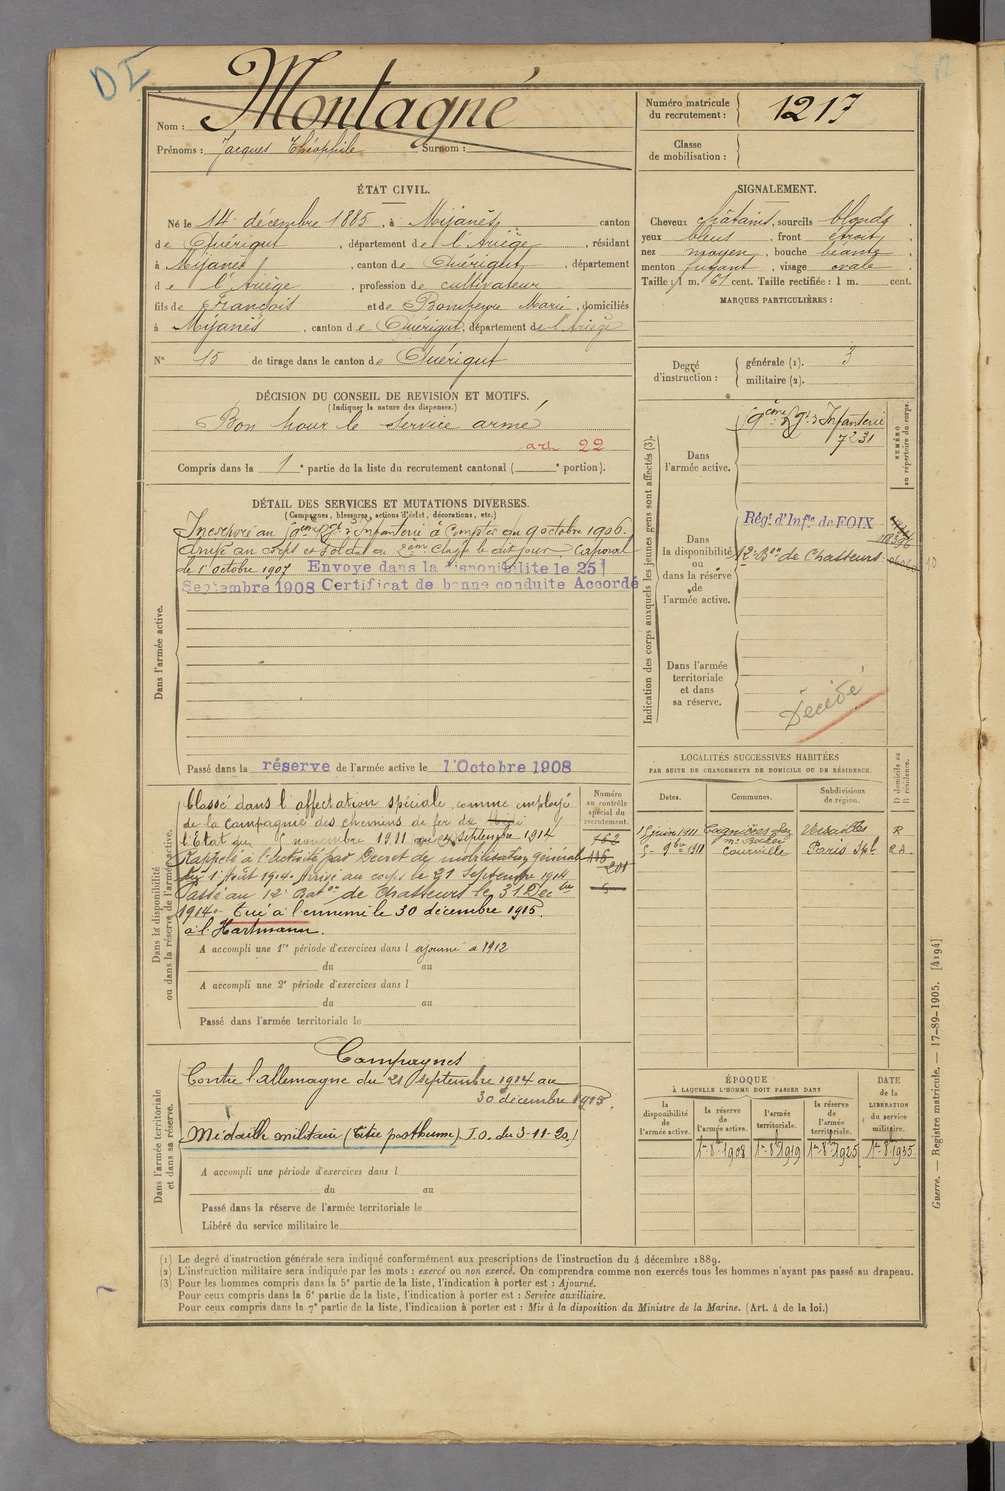 DI
Nom : Montagné
Prénoms : Jacques Théophile Surnom :
Numéro matricule
du recrutement : 1217
Classe
de mobilisation :
ÉTAT CIVIL.
Né le 14 décembre 1885, à Mijanès, canton
de Quérigut, département de l'Ariège, résidant
à Mijanès, canton de Quérigut, département
de l'Ariège, profession de cultivateur
fils de François et de Bompeyre Marie, domiciliés
à Mijanès, canton de Quérigut, département de l'Ariège
N° 15 de tirage dans le canton de Quérigut
SIGNALEMENT.
Cheveux châtains, sourcils blonds
yeux bleus, front étroit,
nez moyen, bouche béante
menton fuyant, visage ovale
Taille : 1 m. 61 cent. Taille rectifiée : 1 m. cent.
MARQUES PARTICULIÈRES :
Degré
d'instruction :
générale (1). 3
militaire (2).
DÉCISION DU CONSEIL DE REVISION ET MOTIFS.
(Indiquer la nature des dispenses.)
Bon pour le service armé
art 22
Compris dans la 1e partie de la liste du recrutement cantonal ( e portion).
DÉTAIL DES SERVICES ET MUTATIONS DIVERSES.
(Campagnes, blessures, actions d'éclat, décorations, etc.)
Dans l'armée active.
Incorporé au 9ème Rgt d'Infanterie à Compter du 9 octobre 1906.
Arrivé au corps et soldat de 2ème classe le dit jour Caporal
le 1er octobre 1907 Envoye dans la disponibilite le 25
Septembre 1908 Certificat de bonne conduite Accordé
Passé dans la réserve de l'armée active le 1'Octobre 1908
Indication des corps auxquels les jeunes gens sont affectés (3).
NUMÉRO
au répertoire du corps.
Dans
l'armée active.
9ème Rgt d'Infanterie
7231
Dans
la disponibilité
ou
dans la réserve
de
l'armée active.
Régt d'Infie de FOIX
12e Bon de Chasseurs
10
Dans l'armée
territoriale
et dans
sa réserve.
Décédé
Dans la disponibilité
ou dans la réserve de l'armée active.
Classé dans l'affectation spéciale comme employé
de la Compagnie des chemins de fer de
l'Etat du 5 novembre 1911 au 21 septembre 1914
Rappelé à l'activité par Décret de mobilisation générale
du 1er Août 1914. Arrivé au corps le 21 Septembre 1914
Passé au 12e Baton de Chasseurs le 31 Décbre
1914. Tué à l'ennemi le 30 décembre 1915.
à l'Hartmann.
A accompli une 1re période d'exercices dans l ajourné à 1912
du au
A accompli une 2e période d'exercices dans l
du au
Passé dans l'armée territoriale le
Numéro
au contrôle
spécial du
recrutement.
162
116
201
LOCALITÉS SUCCESSIVES HABITÉES
PAR SUITE DE CHANGEMENTS DE DOMICILE OU DE RÉSIDENCE.
D domicile ou
R résidence.
Dates. Communes. Subdivisions
de région.
15 juin 1911 Coignières chez Versailles R
Mr Bocher
5 9bre 1911 Courville Paris Spl. R.A.
Dans l'armée territoriale
et dans sa réserve.
Campagnes
Contre l'allemagne du 21 septembre 1914 au
30 décembre 1915.
Médaille militaire (Titre posthume) J.O. du 3-11-20.
A accompli une période d'exercices dans l
du au
Passé dans la réserve de l'armée territoriale le
Libéré du service militaire le
ÉPOQUE
À LAQUELLE L'HOMME DOIT PASSER DANS
la
disponibilité
de
l'armée active.
la réserve
de
l'armée active.
l'armée
territoriale.
la réserve
de
l'armée
territoriale.
DATE
de la
LIBÉRATION
du service
militaire.
1er 8bre 1908 1er 8bre 1919 1er 8bre 1925 1er 8bre 1935
Guerre. — Registre matricule. — 17-89-1905. [4194]
(1) Le degré d'instruction générale sera indiqué conformément aux prescriptions de l'instruction du 4 décembre 1889.
(2) L'instruction militaire sera indiquée par les mots : exercé ou non exercé. On comprendra comme non exercés tous les hommes n'ayant pas passé au drapeau.
(3) Pour les hommes compris dans la 5e partie de la liste, l'indication à porter est : Ajourné.
Pour ceux compris dans la 6e partie de la liste, l'indication à porter est : Service auxiliaire.
Pour ceux compris dans la 7e partie de la liste, l'indication à porter est : Mis à la disposition du Ministre de la Marine. (Art. 4 de la loi.)